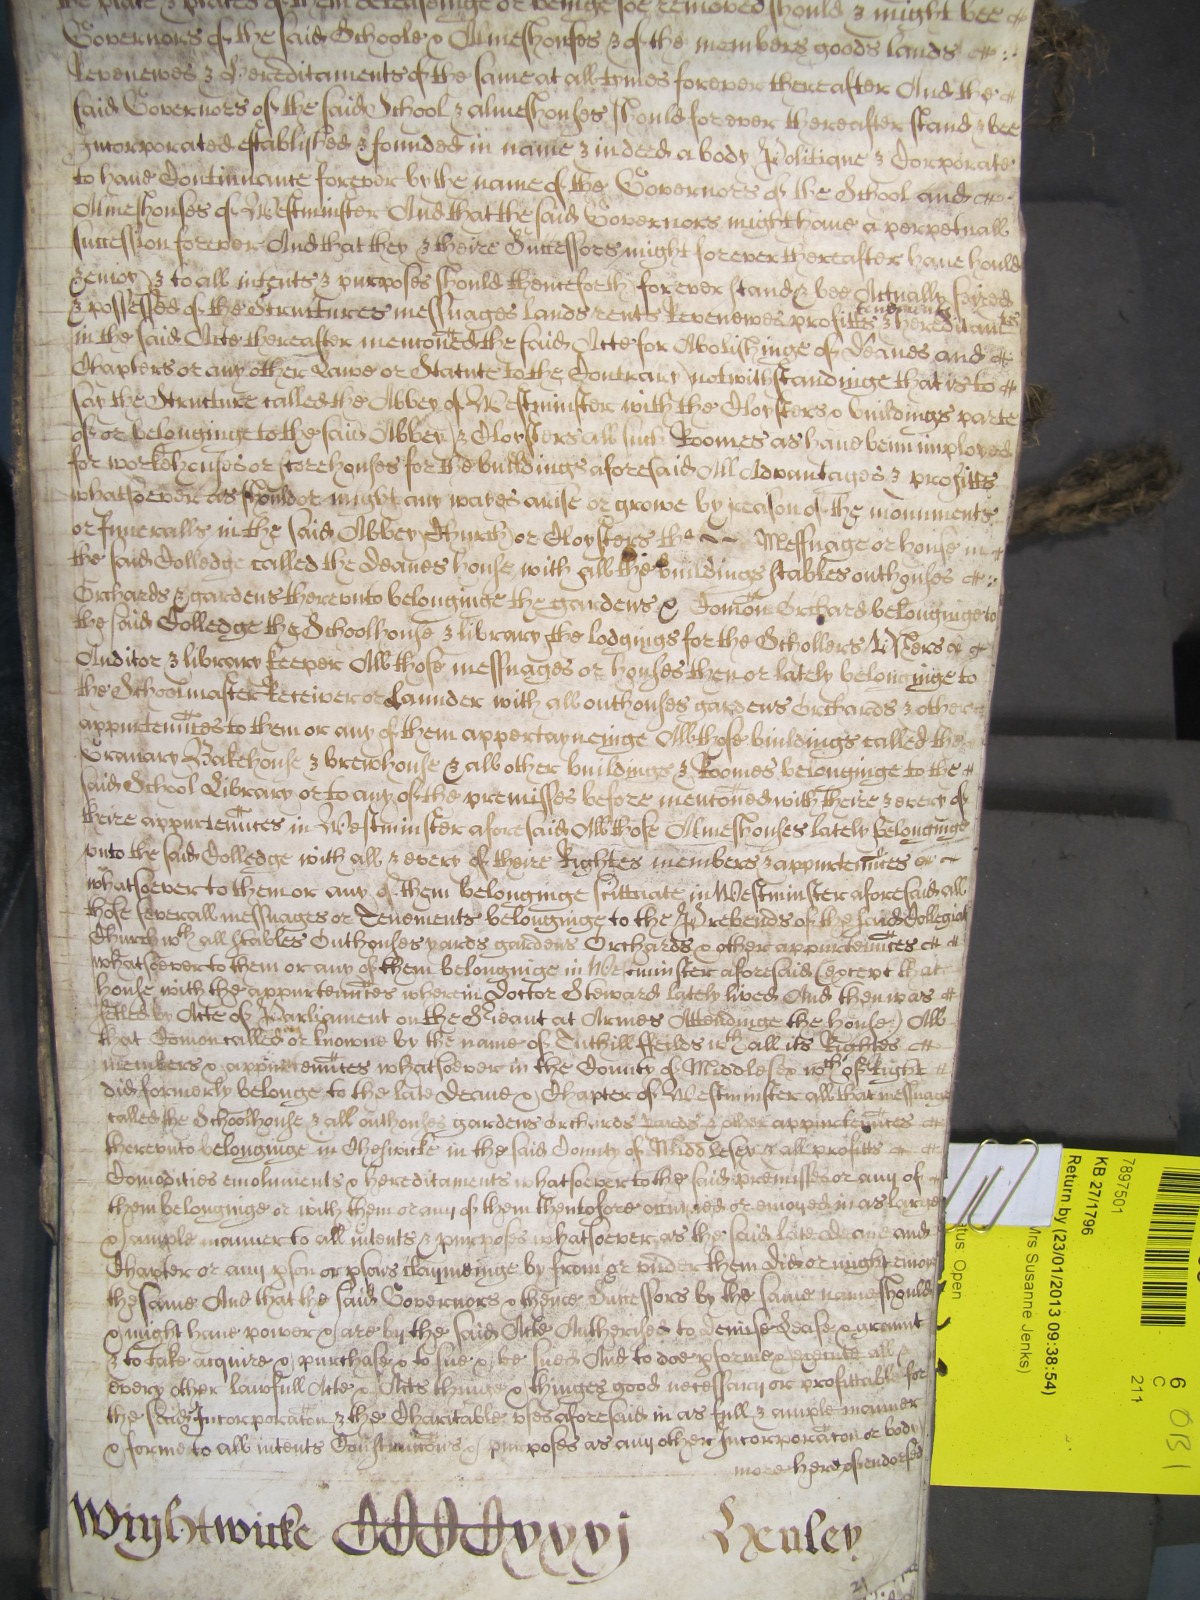 the place & places of them deceasinge or beinge soe removed should & might bee
Governors of the said Schoole & Almeshouses & of the members goods lands
Revenewes & hereditaments of the same at all tymes forever thereafter And the
said Governors of the said School & almeshouses should for ever thereafter stand & bee
Incorporated established & founded in name & in deed a body Politique & Corporate
to have Continuance forever by the name of the Governors of the School and
Almeshouses of Westminster And that the said Governors might have a perpetuall
succession forever And that they & theire Successors might forever thereafter have hould
& enioy & to all intents & purposes should thenceforth forever stand & bee Actually seized
& possessed of the Structures messuages lands tenements rents Revenewes profitts & hereditamts
in the said Acte thereafter menconed the said Acte for Abolishinge of Deanes and
Chapters or any other Lawe or Statute to the Contrary notwithstandinge that is to
say the Structure called the Abbey of Westminster with the Cloysters & buildings parte
of or belonginge to the said Abbey & Cloysters all such Roomes as have beene imployed
for workehouses or storehouses for the buildings aforesaid All Advantages & profitts
whatsoever as should or might any wayes arise or growe by reason of the monuments
or funeralls in the said Abbey Church or Cloysters the Messuage or house in
the said Colledge called the Deanes house with all the buildings stables outhouses
Orchards & gardens thereunto belonginge the gardens & Comon Orchard belonginge to
the said Colledge the Schoolhouse & library the lodgings for the Schollers Ushers
Auditor & library keeper All those messuages or houses then or lately belonginge to
the Schoolmaster Receiver or Launder with all outhouses gardens Orchards & other
appurtennces to them or any of them appertayneinge All those buildings called the
Granary Bakehouse & brewhouse & all other buildings & Roomes belonginge to the
said School Library or to any of the premisses before menconed with theire & every of
theire appurtennces in Westminster aforesaid All those Almeshouses lately belonginge
unto the said Colledge with all & every of theire Rightes members & appurtennces
whatsoever to them or any of them belonginge scittuate in Westminster aforesaid all
those severall messuages or Tenements belonginge to the Prebends of the said Collegiat
Church wth all stables Outhouses yards gardens Orchards & other appurtennces
whatsoever to them or any of them belonginge in Westminster aforesaid (except that
house with the appurtennces wherein Doctor Steward lately lived And then was
setled by Acte of Parliament on the Serieant at Armes Attendinge the house) All
that Comon called or knowne by the name of Tuthill ffeilds wth all its Rightes
members & appurtennces whatsoever in the County of Middlesex wch of Right
did formerly belonge to the late Deane & Chapter of Westminster all that messuage
called the Schoolhouse & all outhouses gardens orchards yards & other appurtennces
thereunto belonginge in Cheswicke in the said County of Middlesex & all profitts
Comodities emoluments & hereditaments whatsoever to the said premisses or any of
them belonginge or with them or any of them thentofore occupied or enioyed in as large
& ample manner to all intents & purposes whatsoever as the said late Deane and
Chapter or any pson or psons claymeinge by from or under them did or might enioy
the same And that the said Governors & theire Successors by the same name should
& might have power & are by the said Acte Authorised to demise Lease & graunt
& to take acquire & purchase & to sue & be sued And to doe pforme & execute all &
every other lawfull Acte & Acts thinge & thinges good necessary or profittable for
the said Incorporacon & the Charitable uses aforesaid in as full & ample manner
& forme to all intents Construccons & purposes as any other Incorporacon or body
more hereof endorsed
Wightwicke CCCCxxxj Henley
7897501
KB 27/1796
Return by (23/01/2013 09:38:54)
Mrs Susanne Jenks)
tus: Open
6
C
211